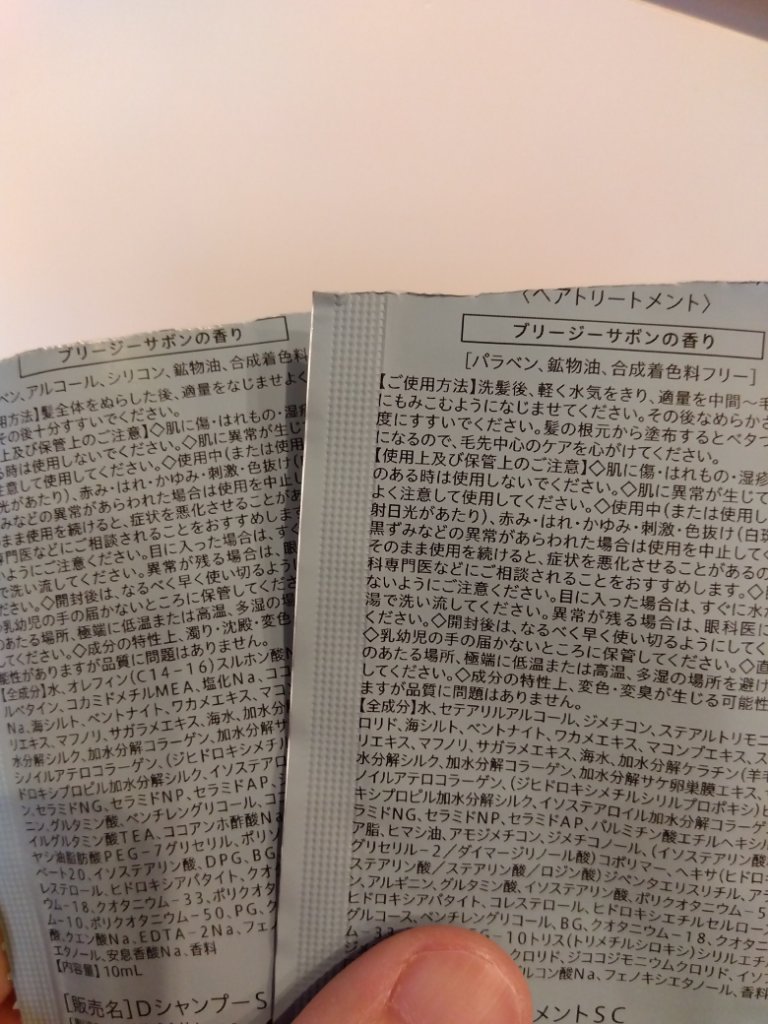 ブリージーサボンの香り
ベン、アルコール、シリコン、鉱物油、合成着色料
用方法】髪全体をぬらした後、適量をなじませよく
その後十分すすいでください。
上及び保管上のご注意】◇肌に傷・はれもの・湿疹
る時は使用しないでください。◇肌に異常が生じ
注意して使用してください。◇使用中(または使用
光があたり)、赤み・はれ・かゆみ・刺激・色抜け(白
みなどの異常があらわれた場合は使用を中止し
まま使用を続けると、症状を悪化させることがあ
専門医などにご相談されることをおすすめします
いようにご注意ください。目に入った場合は、すぐ
で洗い流してください。異常が残る場合は、眼科
ださい。◇開封後は、なるべく早く使い切るように
乳幼児の手の届かないところに保管してくださ
のあたる場所、極端に低温または高温、多湿の場
してください。◇成分の特性上、濁り・沈殿・変色
能性がありますが品質に問題はありません。
【全成分】水、オレフィン(C14-16)スルホン酸N
ルベタイン、コカミドメチルMEA、塩化Na、ココ
Na、海シルト、ベントナイト、ワカメエキス、マコン
リエキス、マフノリ、サガラメエキス、海水、加水分
水分解シルク、加水分解コラーゲン、加水分解サケ
シノイルアテロコラーゲン、(ジヒドロキシメチ
ドロキシプロピル加水分解シルク、イソステアロ
ン、セラミドNG、セラミドNP、セラミドAP、
ニン、グルタミン酸、ペンチレングリコール、コ
イルグルタミン酸TEA、ココアンホ酢酸Na
ヤシ油脂肪酸PEG-7グリセリル、ポリソ
ベート20、イソステアリン酸、DPG、BG
レステロール、ヒドロキシアパタイト、クオ
ウム-18、クオタニウム-33、ポリクオタ
ム-10、ポリクオタニウム-50、PG、
酸、クエン酸Na、EDTA-2Na、フェノ
エタノール、安息香酸Na、香料
【内容量】10mL
[販売名]DシャンプーS
〈ヘアトリートメント〉
ブリージーサボンの香り
[パラベン、鉱物油、合成着色料フリー]
【ご使用方法】洗髪後、軽く水気をきり、適量を中間〜毛
にもみこむようになじませてください。その後なめらかさ
度にすすいでください。髪の根元から塗布するとベタつ
になるので、毛先中心のケアを心がけてください。
【使用上及び保管上のご注意】◇肌に傷・はれもの・湿疹
のある時は使用しないでください。◇肌に異常が生じて
よく注意して使用してください。◇使用中(または使用し
射日光があたり)、赤み・はれ・かゆみ・刺激・色抜け(白斑
黒ずみなどの異常があらわれた場合は使用を中止してく
そのまま使用を続けると、症状を悪化させることがあるの
科専門医などにご相談されることをおすすめします。◇
ないようにご注意ください。目に入った場合は、すぐに水か
湯で洗い流してください。異常が残る場合は、眼科医に
ください。◇開封後は、なるべく早く使い切るようにしてく
◇乳幼児の手の届かないところに保管してください。◇直
のあたる場所、極端に低温または高温、多湿の場所を避け
してください。◇成分の特性上、変色・変臭が生じる可能性
ますが品質に問題はありません。
【全成分】水、セテアリルアルコール、ジメチコン、ステアルトリモニ
ロリド、海シルト、ベントナイト、ワカメエキス、マコンブエキス、ス
リエキス、マフノリ、サガラメエキス、海水、加水分解ケラチン(羊毛
水分解シルク、加水分解コラーゲン、加水分解サケ卵巣膜エキス、
ノイルアテロコラーゲン、(ジヒドロキシメチルシリルプロポキシ)ヒ
キシプロピル加水分解シルク、イソステアロイル加水分解コラーゲ
ラミドNG、セラミドNP、セラミドAP、パルミチン酸エチルヘキシル
ア脂、ヒマシ油、アモジメチコン、ジメチコノール、(イソステアリン酸
グリセリル-2/ダイマージリノール酸)コポリマー、ヘキサ(ヒドロ
ステアリン酸/ステアリン酸/ロジン酸)ジペンタエリスリチル、ア
ン、アルギニン、グルタミン酸、イソステアリン酸、ポリクオタニウム-5
ヒドロキシアパタイト、コレステロール、ヒドロキシエチルセルロース
グルコース、ペンチレングリコール、BG、クオタニウム-18、クオタニ
-33、 EG-10トリス(トリメチルシロキシ)シリルエチ
クロリド、ジココジモニウムクロリド、イソプ
ルコン酸Na、フェノキシエタノール、香料
メントSC